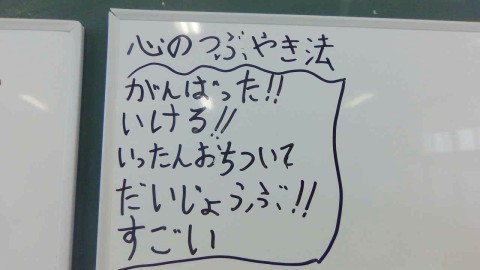 心のつぶやき法
がんばった!!
いける!!
いったんおちついて
だいじょうぶ!!
すごい